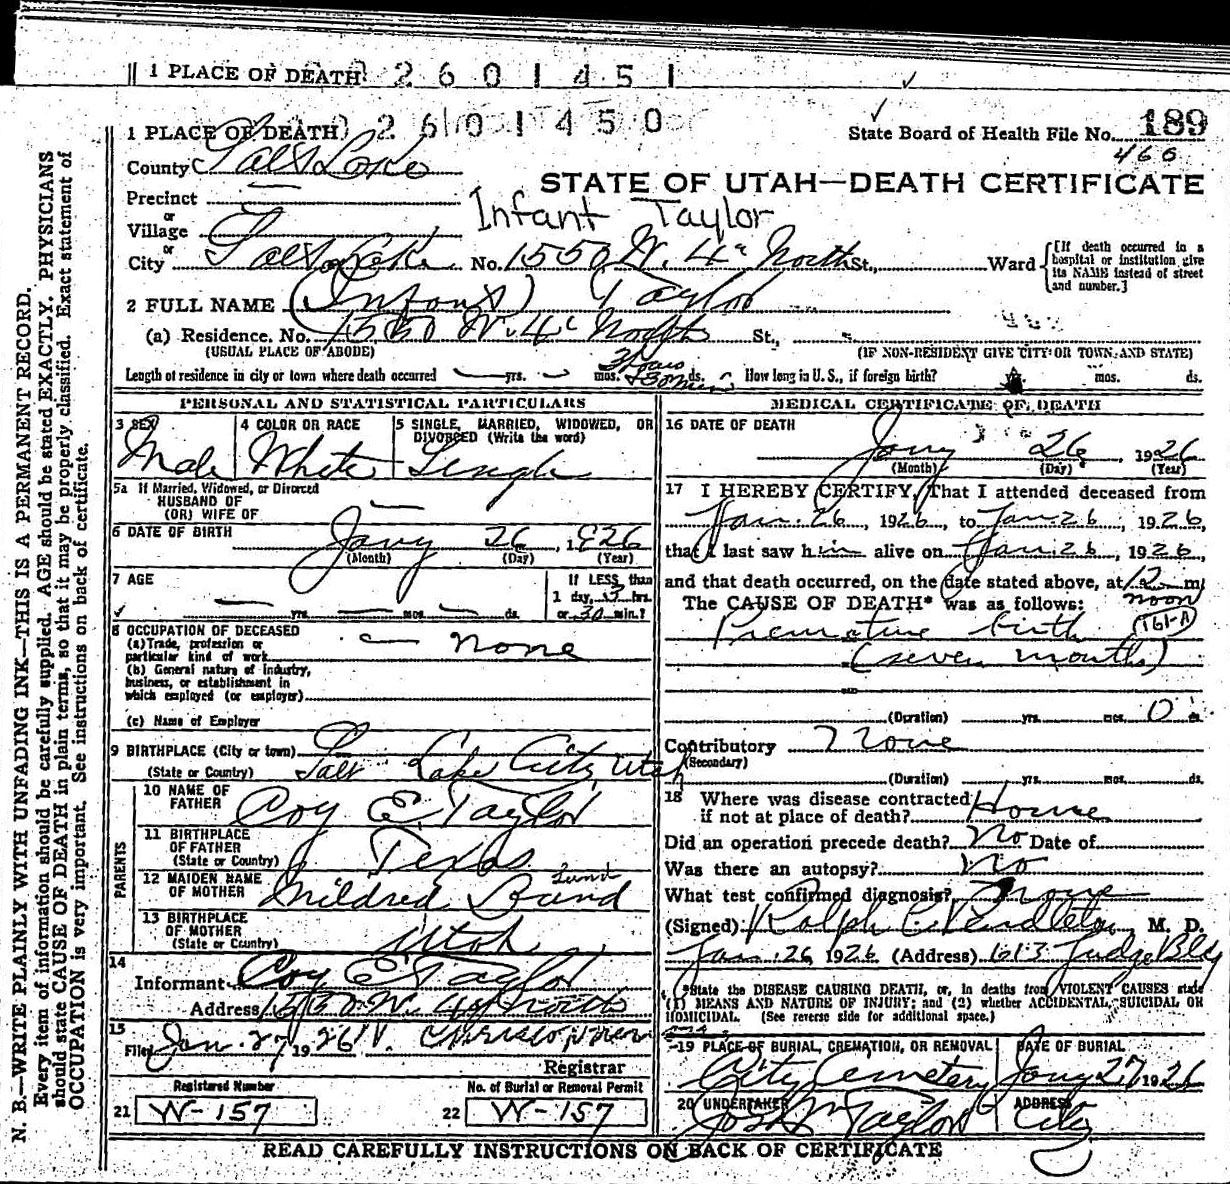 1 PLACE OF DEATH 2 6 0 1 4 5 1
1 PLACE OF DEATH 2 6 0 1 4 5 0
State Board of Health File No. 189
460
County Salt Lake
STATE OF UTAH—DEATH CERTIFICATE
Precinct
Infant Taylor
or
Village
or
City Salt Lake No. 1550 W. 4th North St., Ward
[If death occurred in a hospital or institution, give its NAME instead of street and number.]
2 FULL NAME (Infant) Taylor
(a) Residence. No. 1550 W. 4th North St.,
(USUAL PLACE OF ABODE) (IF NON-RESIDENT GIVE CITY OR TOWN AND STATE)
Length of residence in city or town where death occurred yrs. mos. 3 hours 30 min ds. How long in U. S., if foreign birth? yrs. mos. ds.
PERSONAL AND STATISTICAL PARTICULARS
3 SEX Male
4 COLOR OR RACE White
5 SINGLE, MARRIED, WIDOWED, OR DIVORCED (Write the word) Single
5a If Married, Widowed, or Divorced
HUSBAND OF
(OR) WIFE OF
6 DATE OF BIRTH Jany 26, 1926
(Month) (Day) (Year)
7 AGE yrs. mos. ds.
If LESS than 1 day, 3 hrs. or 30 min.?
8 OCCUPATION OF DECEASED
(a) Trade, profession or particular kind of work none
(b) General nature of industry, business, or establishment in which employed (or employer)
(c) Name of Employer
9 BIRTHPLACE (City or town)
(State or Country) Salt Lake City, Utah
PARENTS
10 NAME OF FATHER Coy E Taylor
11 BIRTHPLACE OF FATHER (State or Country) Texas
12 MAIDEN NAME OF MOTHER Mildred Bund
Lund
13 BIRTHPLACE OF MOTHER (State or Country) Utah
14
Informant Coy E Taylor
Address 1550 W. 4th North
15
Filed Jan. 27 1926
Registrar
Registered Number No. of Burial or Removal Permit
21 W-157 22 W-157
MEDICAL CERTIFICATE OF DEATH
16 DATE OF DEATH
Jany 26, 1926
(Month) (Day) (Year)
17 I HEREBY CERTIFY, That I attended deceased from
Jan. 26, 1926, to Jan 26, 1926,
that I last saw him alive on Jan. 26, 1926,
and that death occurred, on the date stated above, at 12 m.
noon
The CAUSE OF DEATH* was as follows:
Premature birth 161-A
(seven months)
(Duration) yrs. mos. 0 ds.
Contributory None
(Secondary)
(Duration) yrs. mos. ds.
18 Where was disease contracted
if not at place of death? Home
Did an operation precede death? No Date of
Was there an autopsy? No
What test confirmed diagnosis? None
(Signed) Ralph C. Pendleton, M. D.
Jan. 26, 1926 (Address) 613 Judge Bldg
*State the DISEASE CAUSING DEATH, or, in deaths from VIOLENT CAUSES state
(1) MEANS AND NATURE OF INJURY; and (2) whether ACCIDENTAL, SUICIDAL OR
HOMICIDAL. (See reverse side for additional space.)
19 PLACE OF BURIAL, CREMATION, OR REMOVAL DATE OF BURIAL
City Cemetery Jany 27 1926
20 UNDERTAKER ADDRESS
Jos. Wm Taylor City
READ CAREFULLY INSTRUCTIONS ON BACK OF CERTIFICATE
N. B.—WRITE PLAINLY WITH UNFADING INK—THIS IS A PERMANENT RECORD.
Every item of information should be carefully supplied. AGE should be stated EXACTLY. PHYSICIANS
should state CAUSE OF DEATH in plain terms, so that it may be properly classified. Exact statement of
OCCUPATION is very important. See instructions on back of certificate.